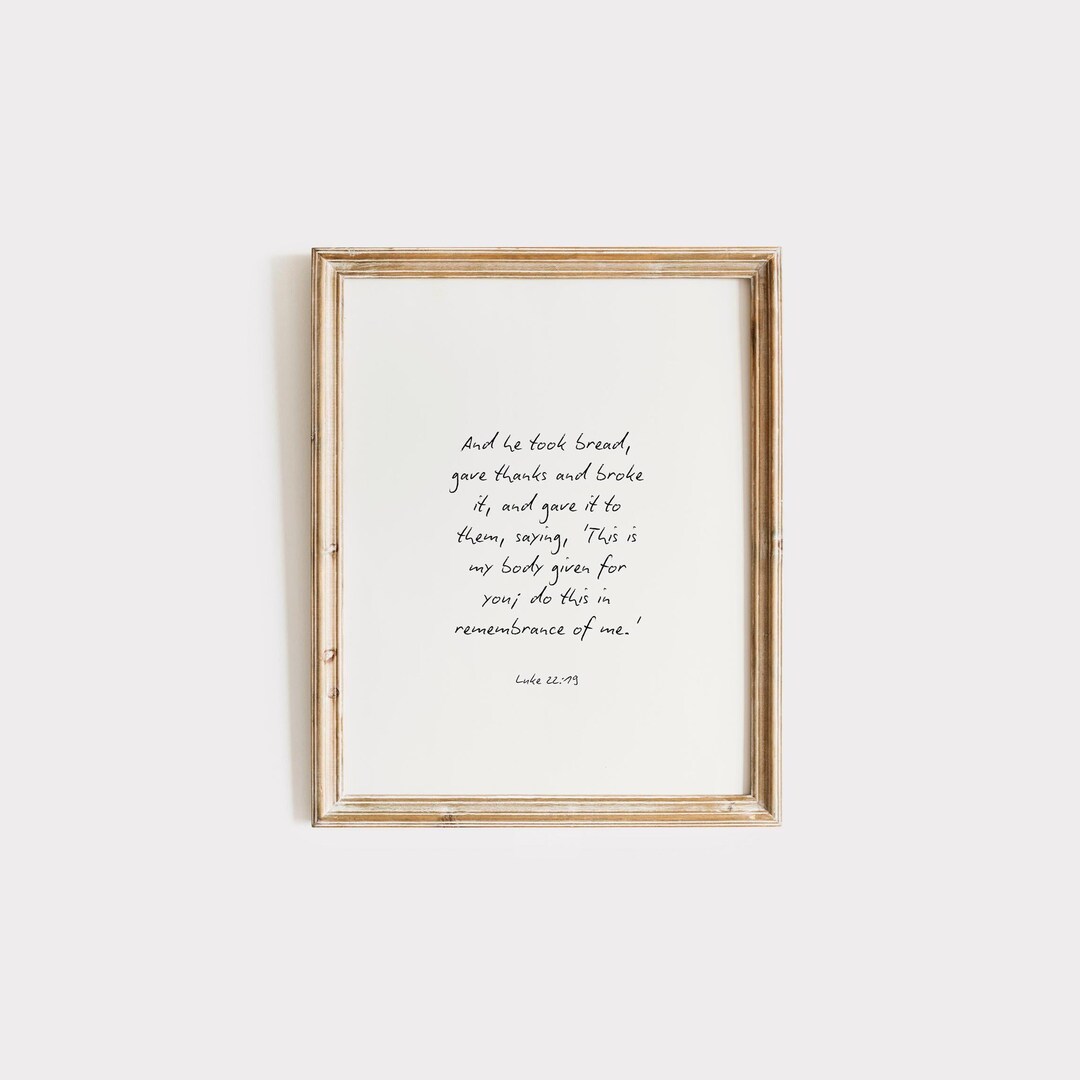 And he took bread,
gave thanks and broke
it, and gave it to
them, saying, 'This is
my body given for
you; do this in
remembrance of me.'
Luke 22:19